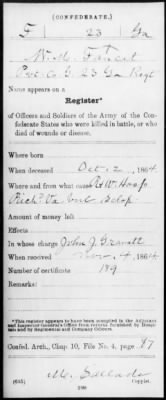 (CONFEDERATE.)
F 23 Ga
W. M.
Pvt. Co. G. 23 Ga Regt
Name appears on a
Register*
of Officers and Soldiers of the Army of the Con-
federate States who were killed in battle, or who
died of wounds or disease.
Where born
When deceased Oct. 12, 1864
Where and from what cause
Amount of money left
Effects
In whose charge John J.
When received Nov. 4, 1864
Number of certificate 189
Remarks:
*This register appears to have been compiled in the Adjutant
and Inspector General's Office from records furnished by Hospi-
tals and by Regiments and Companies.
Confed. Arch., Chap. 10, File No. 4, page 87
(635) Copyist.